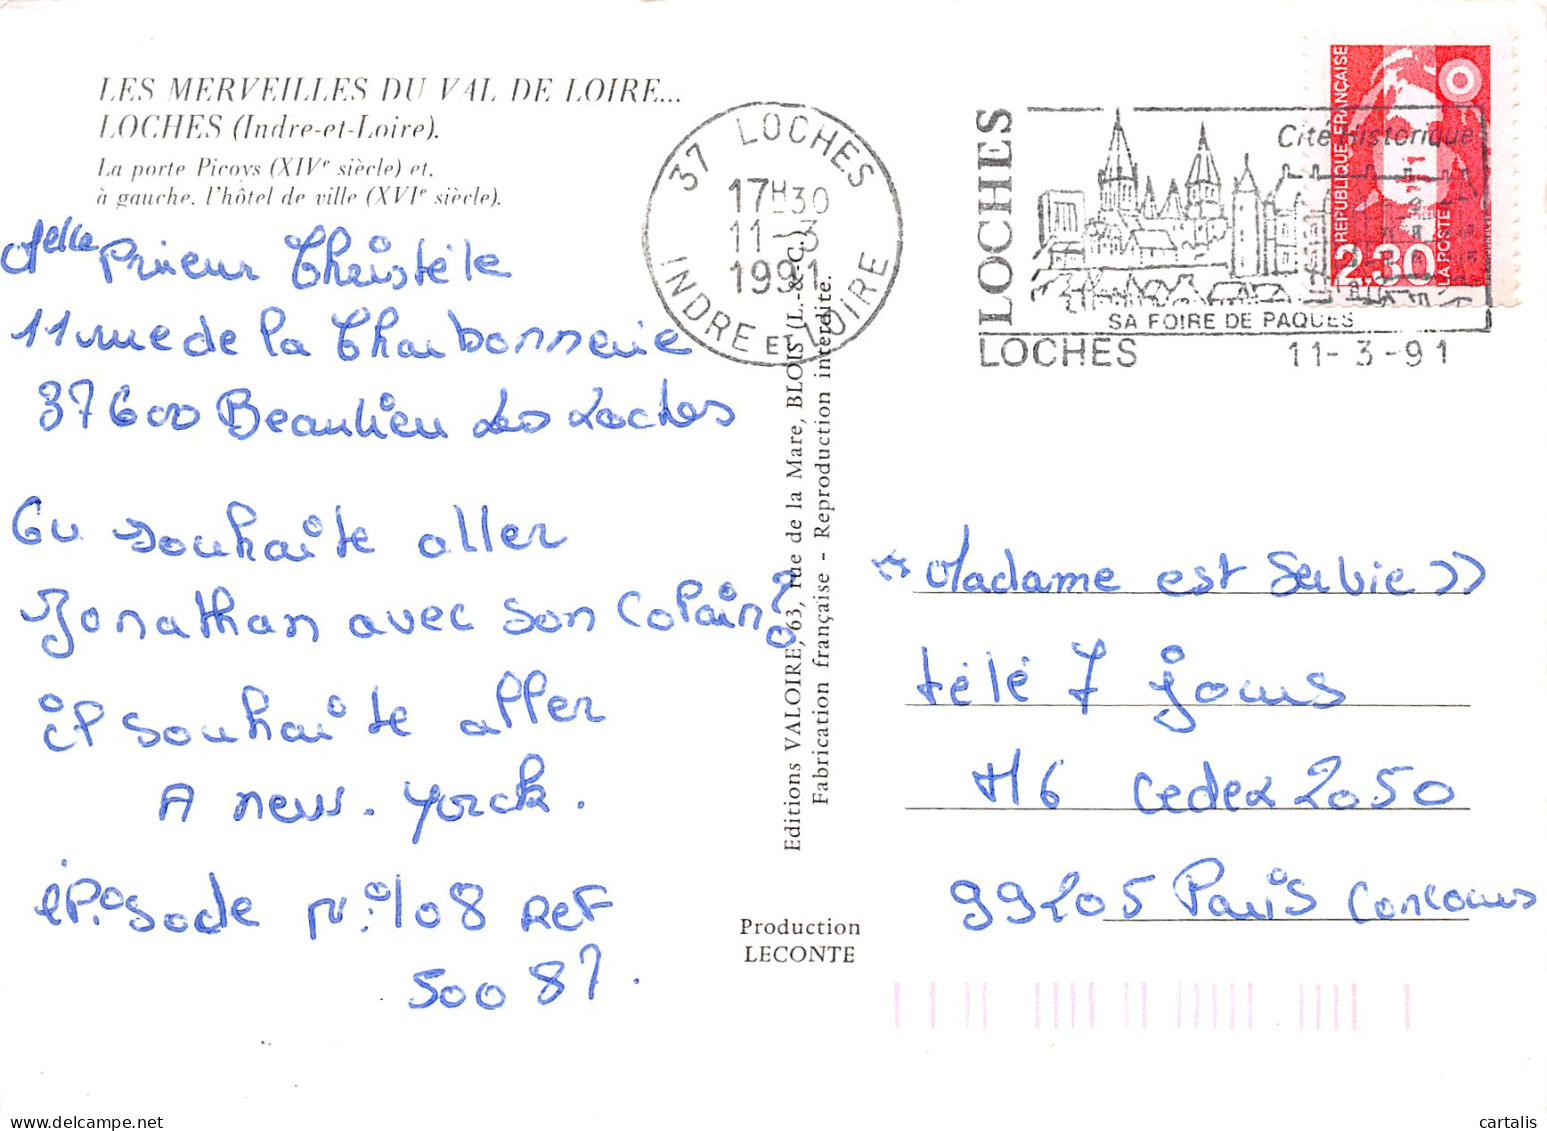 LES MERVEILLES DU VAL DE LOIRE...
LOCHES (Indre-et-Loire).
La porte Picoys (XIVe siècle) et,
à gauche, l'hôtel de ville (XVIe siècle).
Melle Prieur Christèle
11 rue de la Charbonnerie
37600 Beaulieu Les Loches
Ou souhaite aller
Jonathan avec son copain?
il souhaite aller
A new-Yorck.
épisode N:°108 REF
50087.
37 LOCHES
17H30
11-3
1991
INDRE ET LOIRE
LOCHES
Cité Historique
SA FOIRE DE PAQUES
LOCHES 11-3-91
REPUBLIQUE FRANÇAISE
2,30
LA POSTE
Editions VALOIRE, 63, rue de la Mare, BLOIS (L.-&-C.)
Fabrication française - Reproduction interdite.
Production
LECONTE
"Madame est Servie»
télé 7 jours
M6 Cedex 2050
99205 Paris Concours
cartalis.com